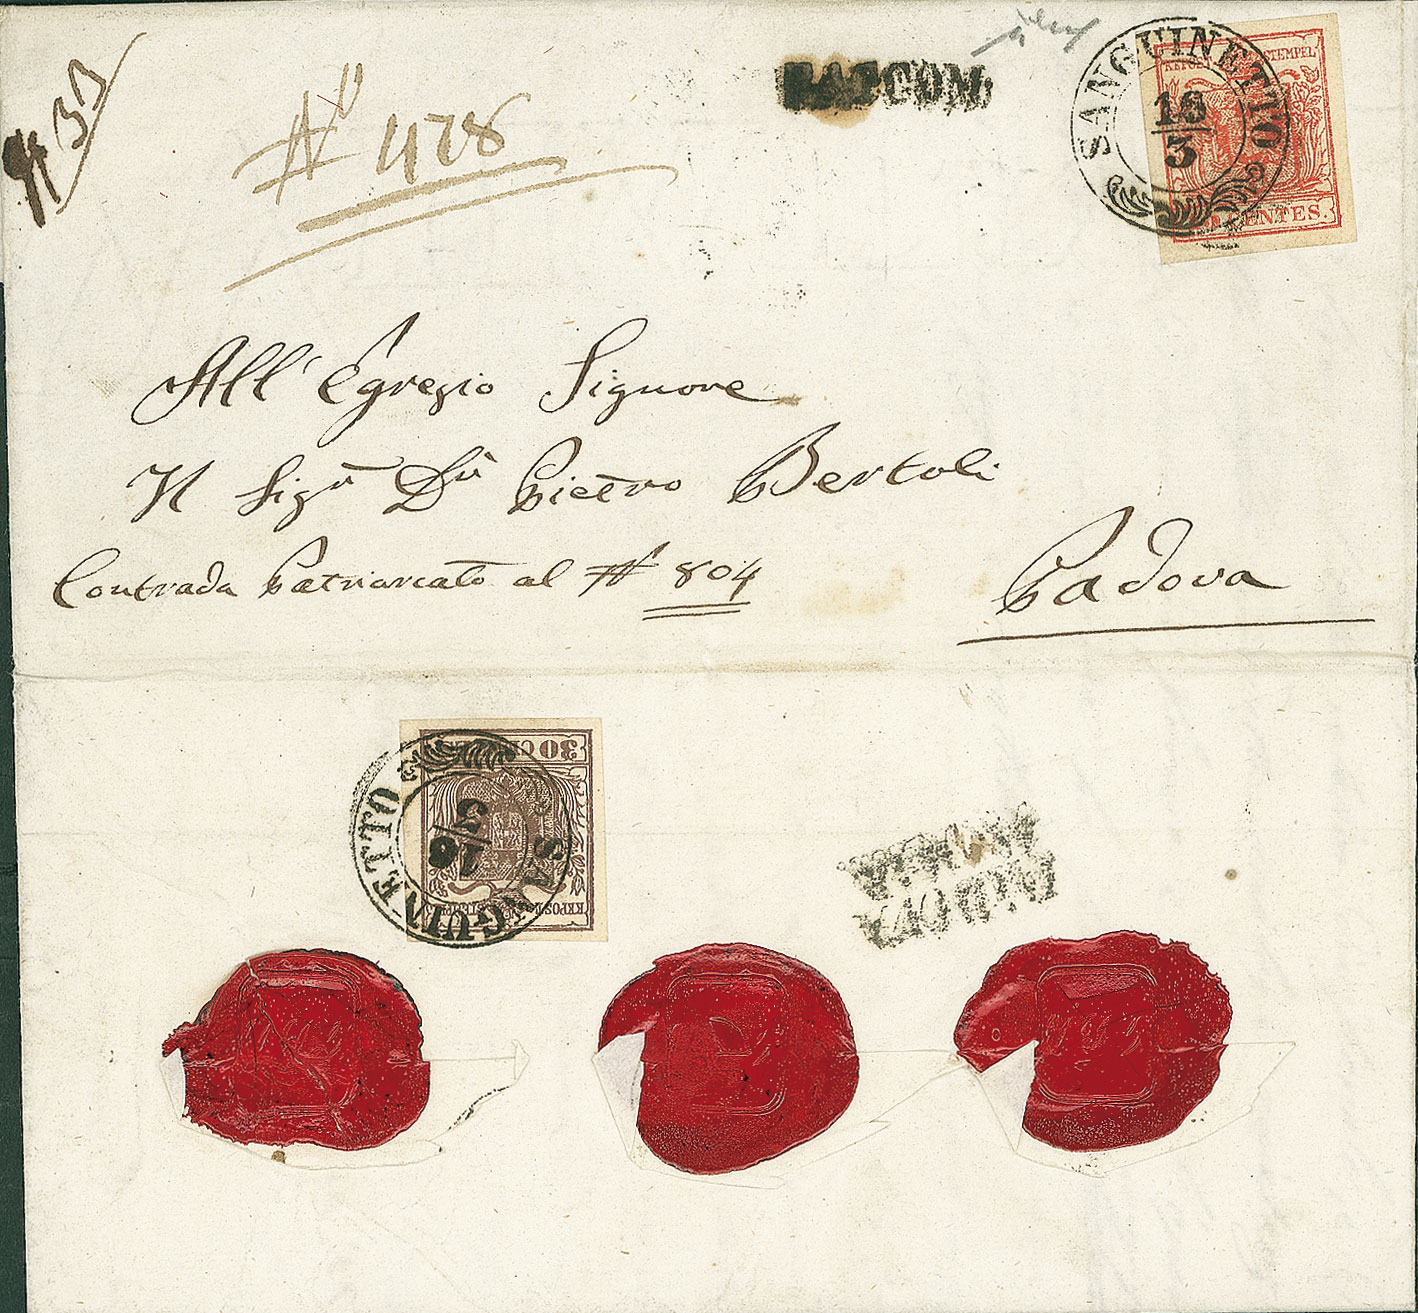 N° 478
RACCOM:
SANGUINETTO
13
3
STEMPEL
CENTES.
All' Egregio Signore
Il Sigr Dr Pietro Bertoli
Contrada Patriarcato al N 804
Padova
30 CE
SANGUINETTO
13
3
KKPOST
STEMPEL
PADOVA